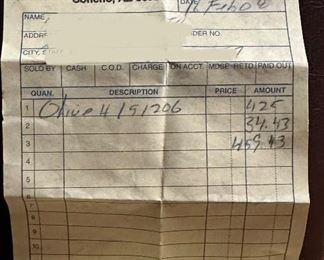 DATE 16 Feb 0
NAME
ADDRE
DER NO.
CITY, STATE
SOLD BY CASH C.O.D. CHARGE ON ACCT. MDSE RETD PAID OUT
QUAN. DESCRIPTION PRICE AMOUNT
1 Olive H/51206 425
2 34.43
3 459.43
4
5
6
7
8
9
10